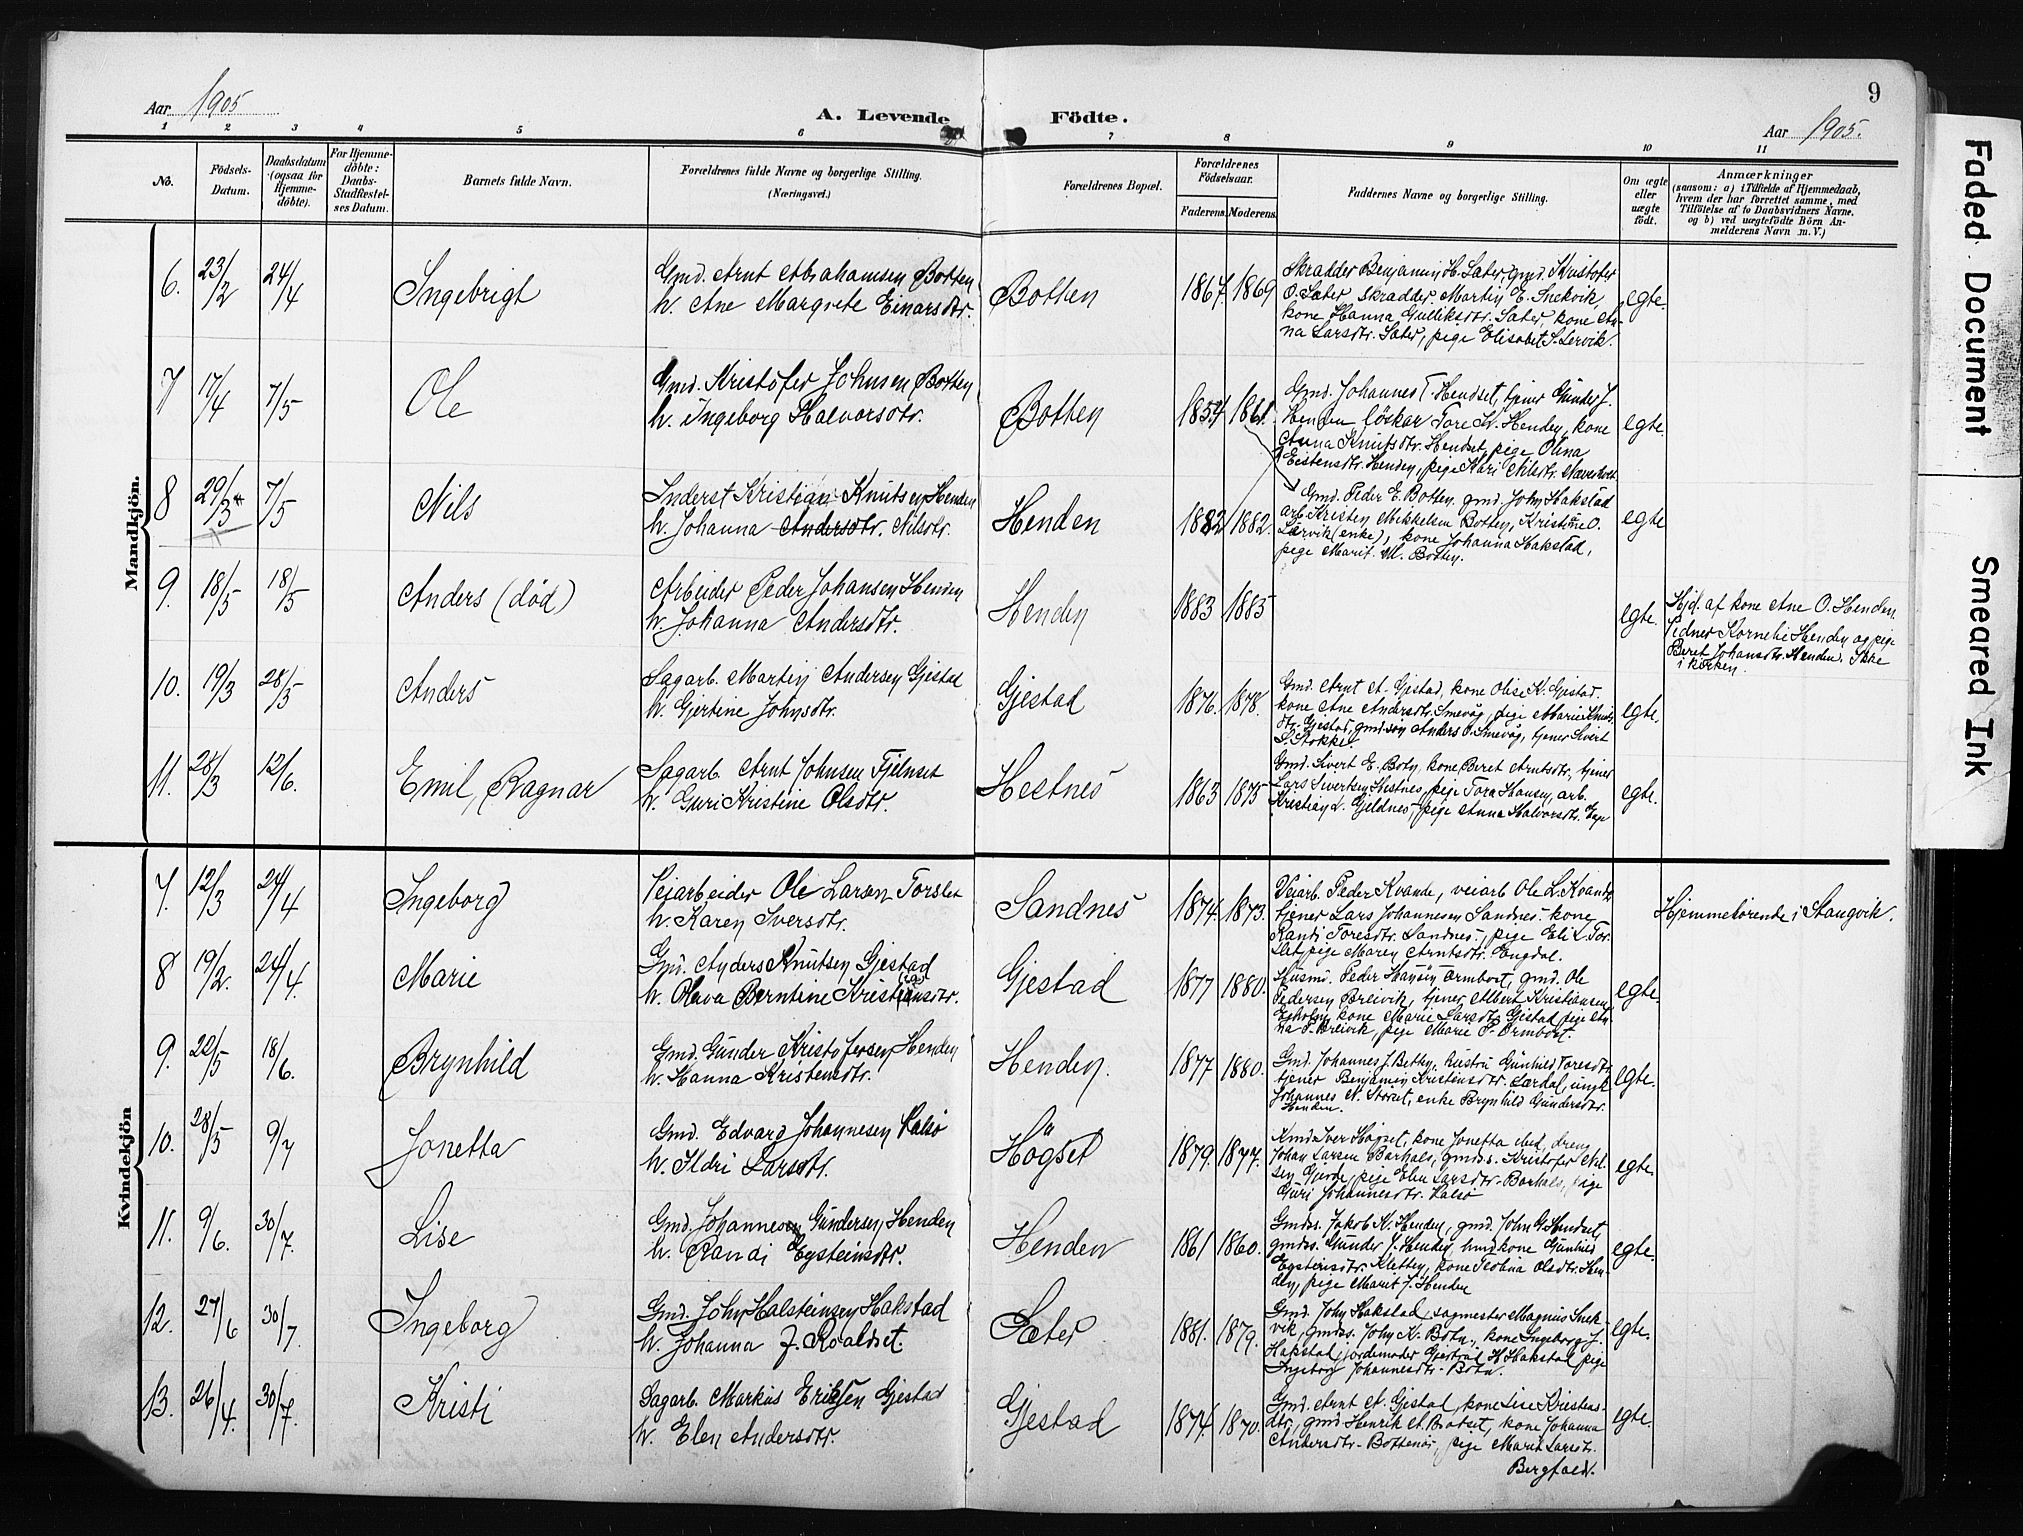 Aar 1905
A. Levende Födte.
9
Aar 1905.
1 2 3 4 5 6 7 8 9 10 11
No.
Födsels-
Datum.
Daabsdatum
(ogsaa for
Hjemme-
döbte).
For Hjemme-
döbte:
Daabs-
Stadfæstel-
ses Datum.
Barnets fulde Navn.
Forældrenes fulde Navne og borgerlige Stilling.
(Næringsvei.)
Forældrenes Bopæl.
Forældrenes
Födselsaar.
Faderens. Moderens.
Faddernes Navne og borgerlige Stilling.
Om ægte
eller
uægte
födt.
Anmærkninger
(saasom: a) i Tilfælde af Hjemmedaab,
hvem der har forrettet samme, med
Tilföielse af to Daabsvidners Navne,
og b) ved uægtefödte Börn An-
melderens Navn m. V.)
Mandkjön.
6. 23/2 24/4 Ingebrigt
Gmd. Arnt Abrahamsen Botten
h. Ane Margrete Einarsdtr.
Botten 1867 1869
Skrædder Benjamin H. Sæter, gmd. Kristofer
O. Sæter skrædder Martin E. Snekvik,
kone Hanna Gulliksdtr. Sæter, kone An-
na Larsdtr. Sæter, pige Elisabet S. Lervik.
egte.
7 17/4 7/5 Ole
Gmd. Kristofer Johnsen Botten
h. Ingeborg Halvorsdtr.
Botten 1854 1861.
Gmd. Johannes T. Hendset, tjener Gunder J.
Henden löskar Tore K. Henden, kone
Anna Knutsdtr. Hendset, pige Olina
Eistensdtr. Henden, pige Kari Nilsdtr.
egte.
8 29/3 7/5 Nils
Inderst Kristian Knutsen Henden
h. Johanna Andersdtr. Nilsdtr.
Henden 1882 1882.
Gmd. Peder E. Botten. gmd. John Hakstad
arb. Kristen Mikkelsen Botten, Kristine O.
Lærvik (enke), kone Johanna Hakstad,
pige Marit M. Botten.
egte
9. 18/5 18/5 Anders (död)
Arbeider Peder Johansen Henden
h. Johanna Andersdtr.
Henden 1883 1885
egte.
Hjd. af kone Ane O. Henden.
Vidner Kornelie Henden og pige
Beret Johansdtr. Henden. Ikke
i kirken.
10. 19/3 28/5 Anders
Sagarb. Martin Andersen Gjestad
h. Gjertine Johnsdtr.
Gjestad 1876. 1878.
Gmd. Arnt A. Gjestad, kone Olise K. Gjestad.
kone Ane Andersdtr. Smevåg, pige Marie Knuts-
dtr. Gjestad, gmd.sön Anders O. Smevåg, tjener Sivert
S. Stokke.
egte.
11. 28/3 12/6. Emil, Ragnar
Sagarb. Arnt Johnsen Fjelnset
h. Guri Kristine Olsdtr.
Hestnes 1863 1875
Gmd. Sivert E. Botn, kone Beret Arntsdtr., tjener
Lars Sivertsen Hestnes, pige Tora Hansen, arb.
Kristian L. Gjeldnes, pige Anna Halvorsdtr.
egte.
Kvindekjön
7. 12/3 24/4 Ingeborg
Veiarbeider Ole Larsen Torslet
h. Karen Iversdtr.
Sandnes 1874. 1873.
Veiarb. Peder Kvande, veiarb Ole L. Kvande
tjener Lars Johannesen Sandnes. kone
Randi Toresdtr. Sandnes, pige Eli L. Tor-
slet, pige Maren Arntsdtr. Engdal.
Hjemmehörende i Stangvik.
8 19/2. 24/4. Marie
Gmd. Anders Knutsen Gjestad
h. Oleva Berntine Kristiansdtr.
Gjestad 1877 1880.
Husmd. Peder Hansen Ormbost, gmd. Ole
Pedersen Breivik, tjener Albert Kristiansen
kone Marie Larsdtr. Gjestad, pige An-
na P. Breivik, pige Marie P. Ormbost.
egte.
9. 22/5 18/6. Brynhild
Gmd. Gunder Kristofersen Henden
h. Hanna Kristensdtr.
Henden. 1877 1880.
Gmd. Johannes J. Botten, hustru Gunhild Toresdtr.
tjener Benjamin Kristensdtr. Lærdal, ungk.
Johannes N. Storset, enke Brynhild Gundersdtr.
Henden.
egte.
10. 28/5 9/7 Jonetta
Gmd. Edvard Johannesen Valsö
h. Ildri Larsdtr.
Högset 1879. 1877.
Kmd. Iver Högset, kone Jonetta ibid, dreng
Johan Larsen Barhals, gmdss. Kristofer Nil-
sen Gjerde, pige Elen Larsdtr. Barhals, pige
Guri Johannesdtr. Valsö
egte.
11. 9/6. 30/7. Lise
Gmd. Johannes Gundersen Henden
h. Randi Eysteinsdtr.
Henden 1861 1860.
Gmdss. Jakob K. Henden, gmd. John G. Hendset,
gmdss. Gunder J. Henden, kone Gunhild
Eysteinsdtr. Kletten, kone Olsdtr. Hen-
den, pige Marit J. Henden
egte.
12. 27/6 30/7. Ingeborg
Gmd. John Halsteinsen Hakstad
h. Johanna J. Roaldset.
Sæter 1881. 1879.
Gmd. John Hakstad, sagmester Magnus Snek-
vik, gmdss. John K. Botn., kone Ingeborg J.
Hakstad, jordemoder Gjertrud H. Hakstad pige
Ingeborg Johannesdtr. Botn.
egte.
13. 26/4. 30/7. Kristi
Sagarb. Markus Eriksen Gjestad
h. Elen Andersdtr.
Gjestad 1874 1870.
Gmd. Arnt A. Gjestad, kone Lise Kristens-
dtr, gmd. Henrik A. Botset, kone Johanna
Andersdtr. Bottenöi, pige Marit Larsdtr.
Bergfald.
egte.
Faded Document
Smeared Ink